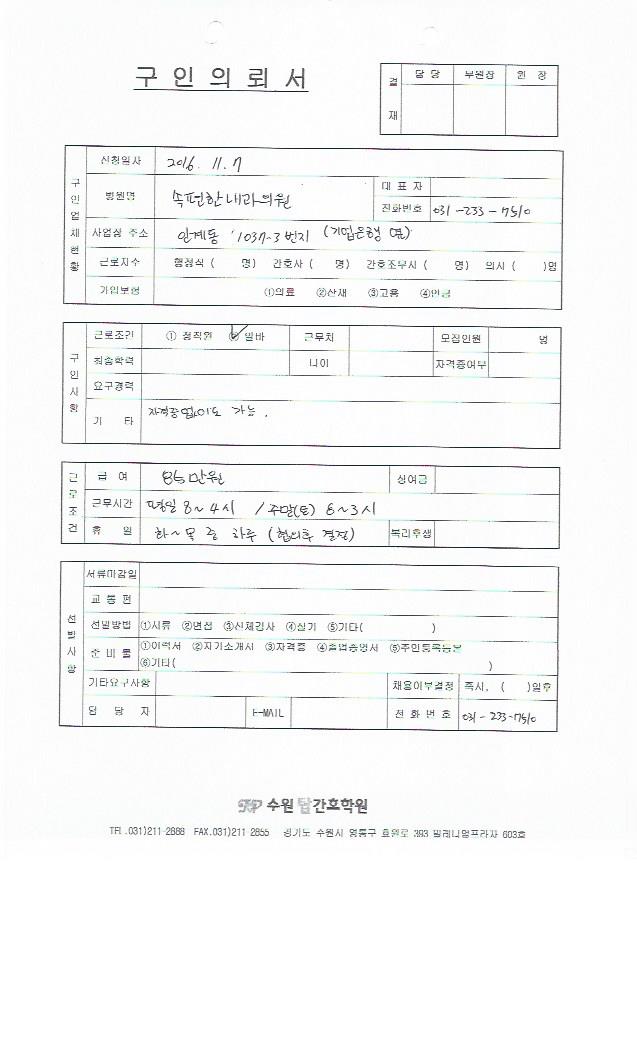 구 인 의 뢰 서
결 재
담 당 부원장 원 장
구인업체현황
신청일자 2016. 11. 7
병원명 속편한내과의원
대 표 자
전화번호 031-233-7510
사업장 주소 인계동 1037-3번지 (기업은행 옆)
근로자수 행정직 ( 명) 간호사 ( 명) 간호조무사 ( 명) 의사 ( )명
가입보험 ①의료 ②산재 ③고용 ④연금
구인사항
근로조건 ① 정직원 ② 알바 근무처 모집인원 명
최종학력 나이 자격증여부
요구경력
기 타 자격증 없이도 가능.
근로조건
급 여 85만원 상여금
근무시간 평일 8~4시 / 주말(토) 8~3시
휴 일 화~목 중 하루 (협의후 결정) 복리후생
선발사항
서류마감일
교 통 편
선발방법 ①서류 ②면접 ③신체검사 ④실기 ⑤기타( )
준 비 물 ①이력서 ②자기소개서 ③자격증 ④졸업증명서 ⑤주민등록등본
⑥기타( )
기타요구사항 채용여부결정 즉시, ( )일후
담 당 자 E-MAIL 전 화 번 호 031-233-7510
수원 탑간호학원
TEL.031)211-2888 FAX.031)211-2855 경기도 수원시 영통구 효원로 393 밀레니엄프라자 603호